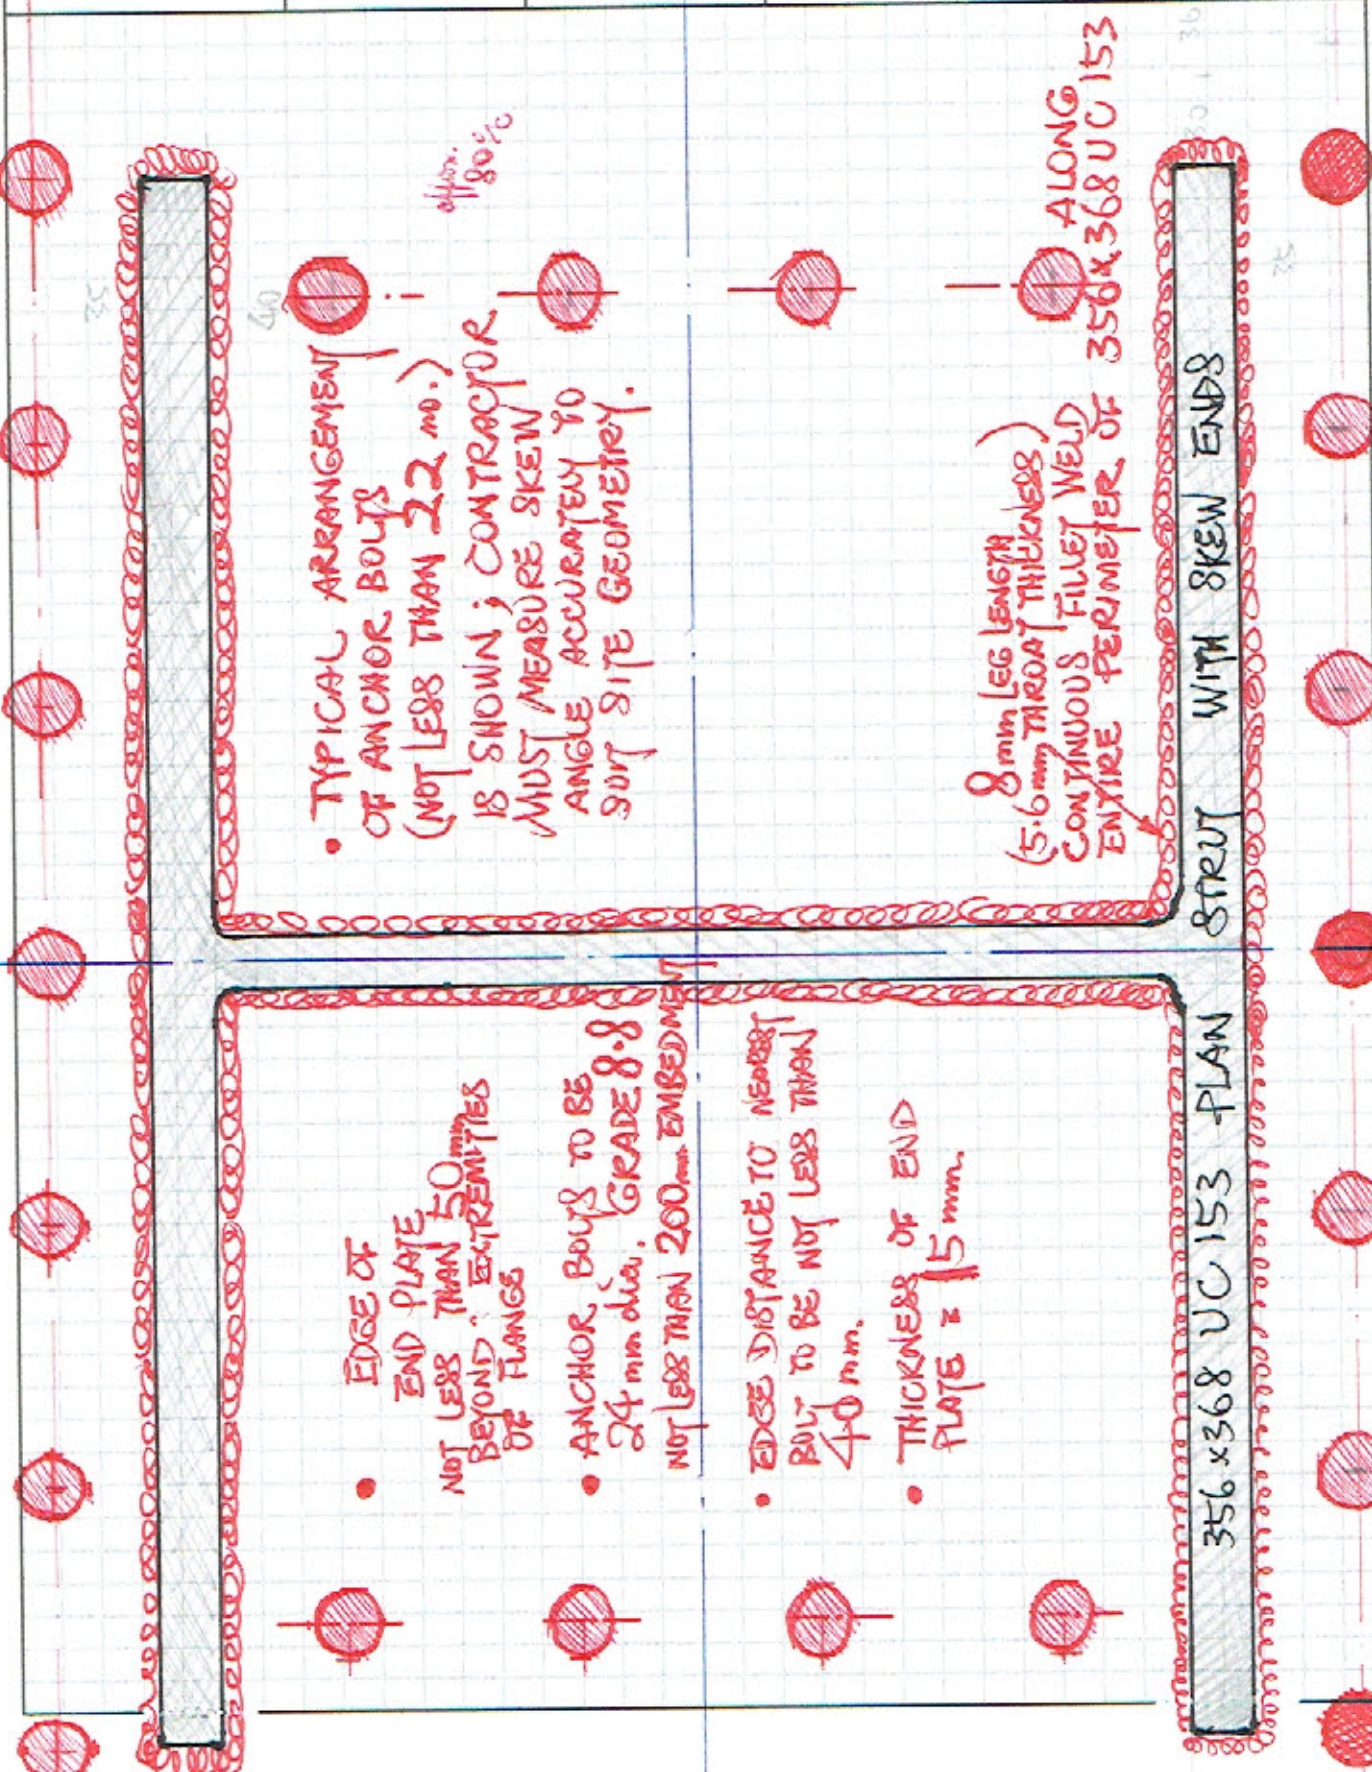 • EDGE OF
END PLATE
NOT LESS THAN 50mm
BEYOND EXTREMITIES
OF FLANGE
• ANCHOR BOLTS TO BE
24 mm dia. GRADE 8.8
NOT LESS THAN 200mm EMBEDMENT
• EDGE DISTANCE TO NEAREST
BOLT TO BE NOT LESS THAN
40 mm.
• THICKNESS OF END
PLATE = 15 mm.
• TYPICAL ARRANGEMENT
OF ANCHOR BOLTS
(NOT LESS THAN 22 no.)
IS SHOWN; CONTRACTOR
MUST MEASURE SKEW
ANGLE ACCURATELY TO
SUIT SITE GEOMETRY.
approx.
80%
8 mm LEG LENGTH
(5.6mm THROAT THICKNESS)
CONTINUOUS FILLET WELD ALONG
ENTIRE PERIMETER OF 356x368 UC 153
356x368 UC 153 PLAN STRUT WITH SKEW ENDS
35
40
35
30